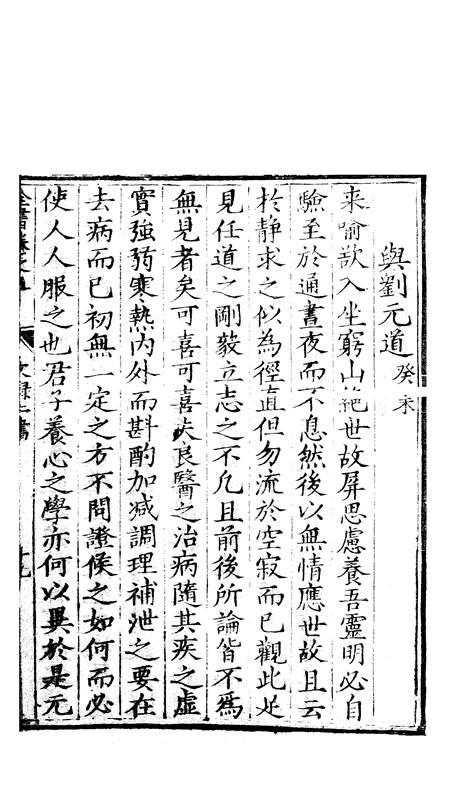 與劉元道癸未
来喻欲入坐窮山絕世故屏思慮養吾靈明必自
驗至於通晝夜而不息然後以無情應世故且云
於静求之似為徑直但勿流於空寂而已觀此足
見任道之剛毅立志之不凡且前後所論皆不為
無見者矣可喜可喜夫良醫之治病隨其疾之虛
實強弱寒熱内外而斟酌加減調理補泄之要在
去病而已初無一定之方不問證候之如何而必
使人人服之也君子養心之學亦何以異於是元